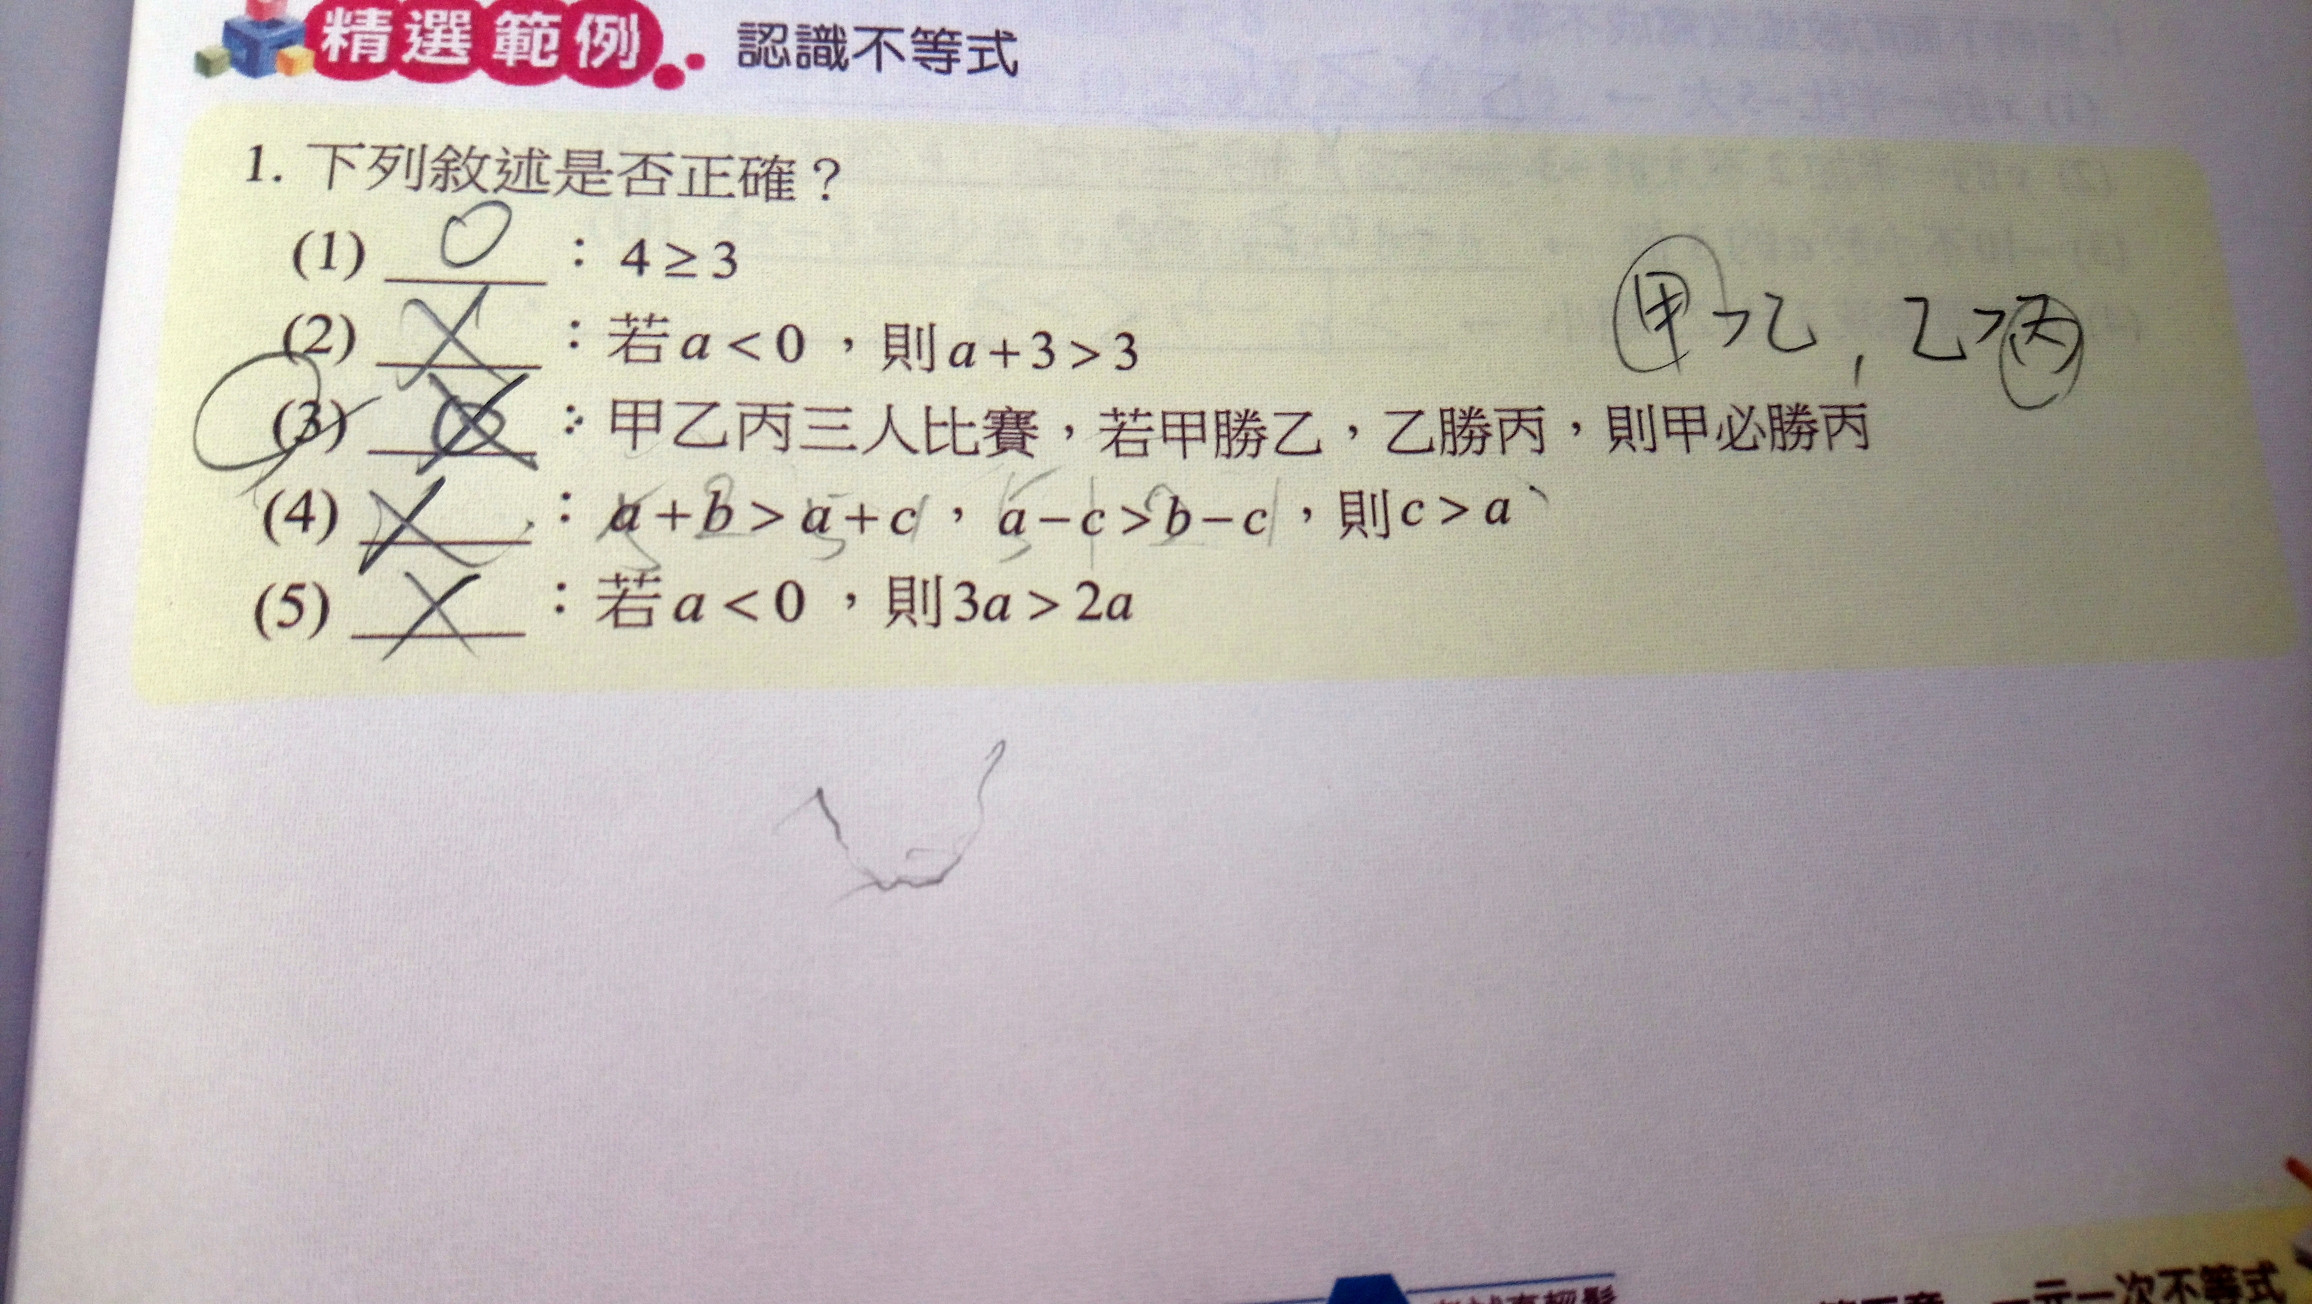 精選範例 認識不等式
1. 下列敘述是否正確？
(1) O ：4 ≥ 3
(2) X ：若 a < 0 ，則 a + 3 > 3
甲 > 乙 , 乙 > 丙
(3) X ：甲乙丙三人比賽，若甲勝乙，乙勝丙，則甲必勝丙
(4) X ：a + b > a + c ， a − c > b − c ，則 c > a
(5) X ：若 a < 0 ，則 3a > 2a
一元一次不等式